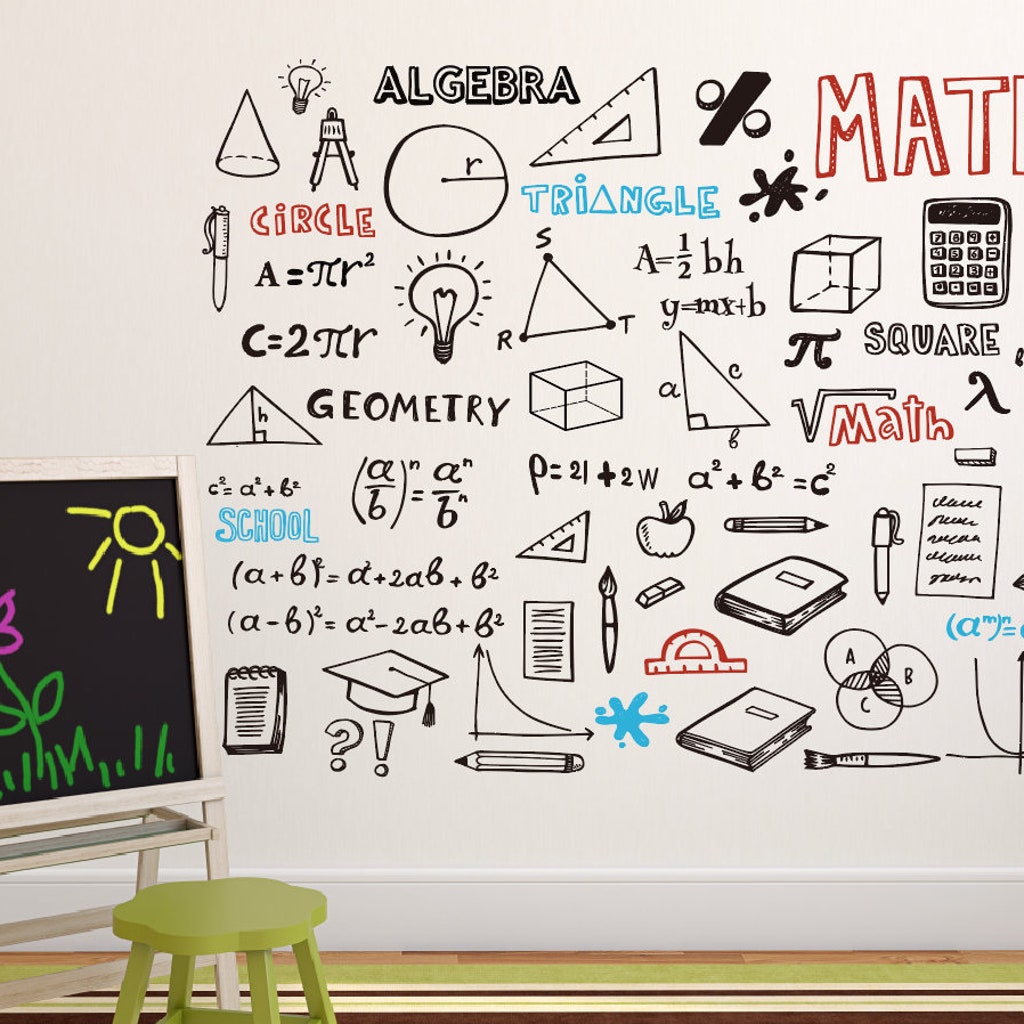 ALGEBRA
%
MAT
r
TRIANGLE
CIRCLE
A=πr²
S
R
T
A=½bh
y=mx+b
C=2πr
π
SQUARE
h
GEOMETRY
a
c
b
√Math
λ
c²=a²+b²
(a/b)ⁿ=aⁿ/bⁿ
P=2l+2w
a²+b²=c²
SCHOOL
(a+b)²=a²+2ab+b²
(a-b)²=a²-2ab+b²
(aᵐ)ⁿ=
A
B
C
?!